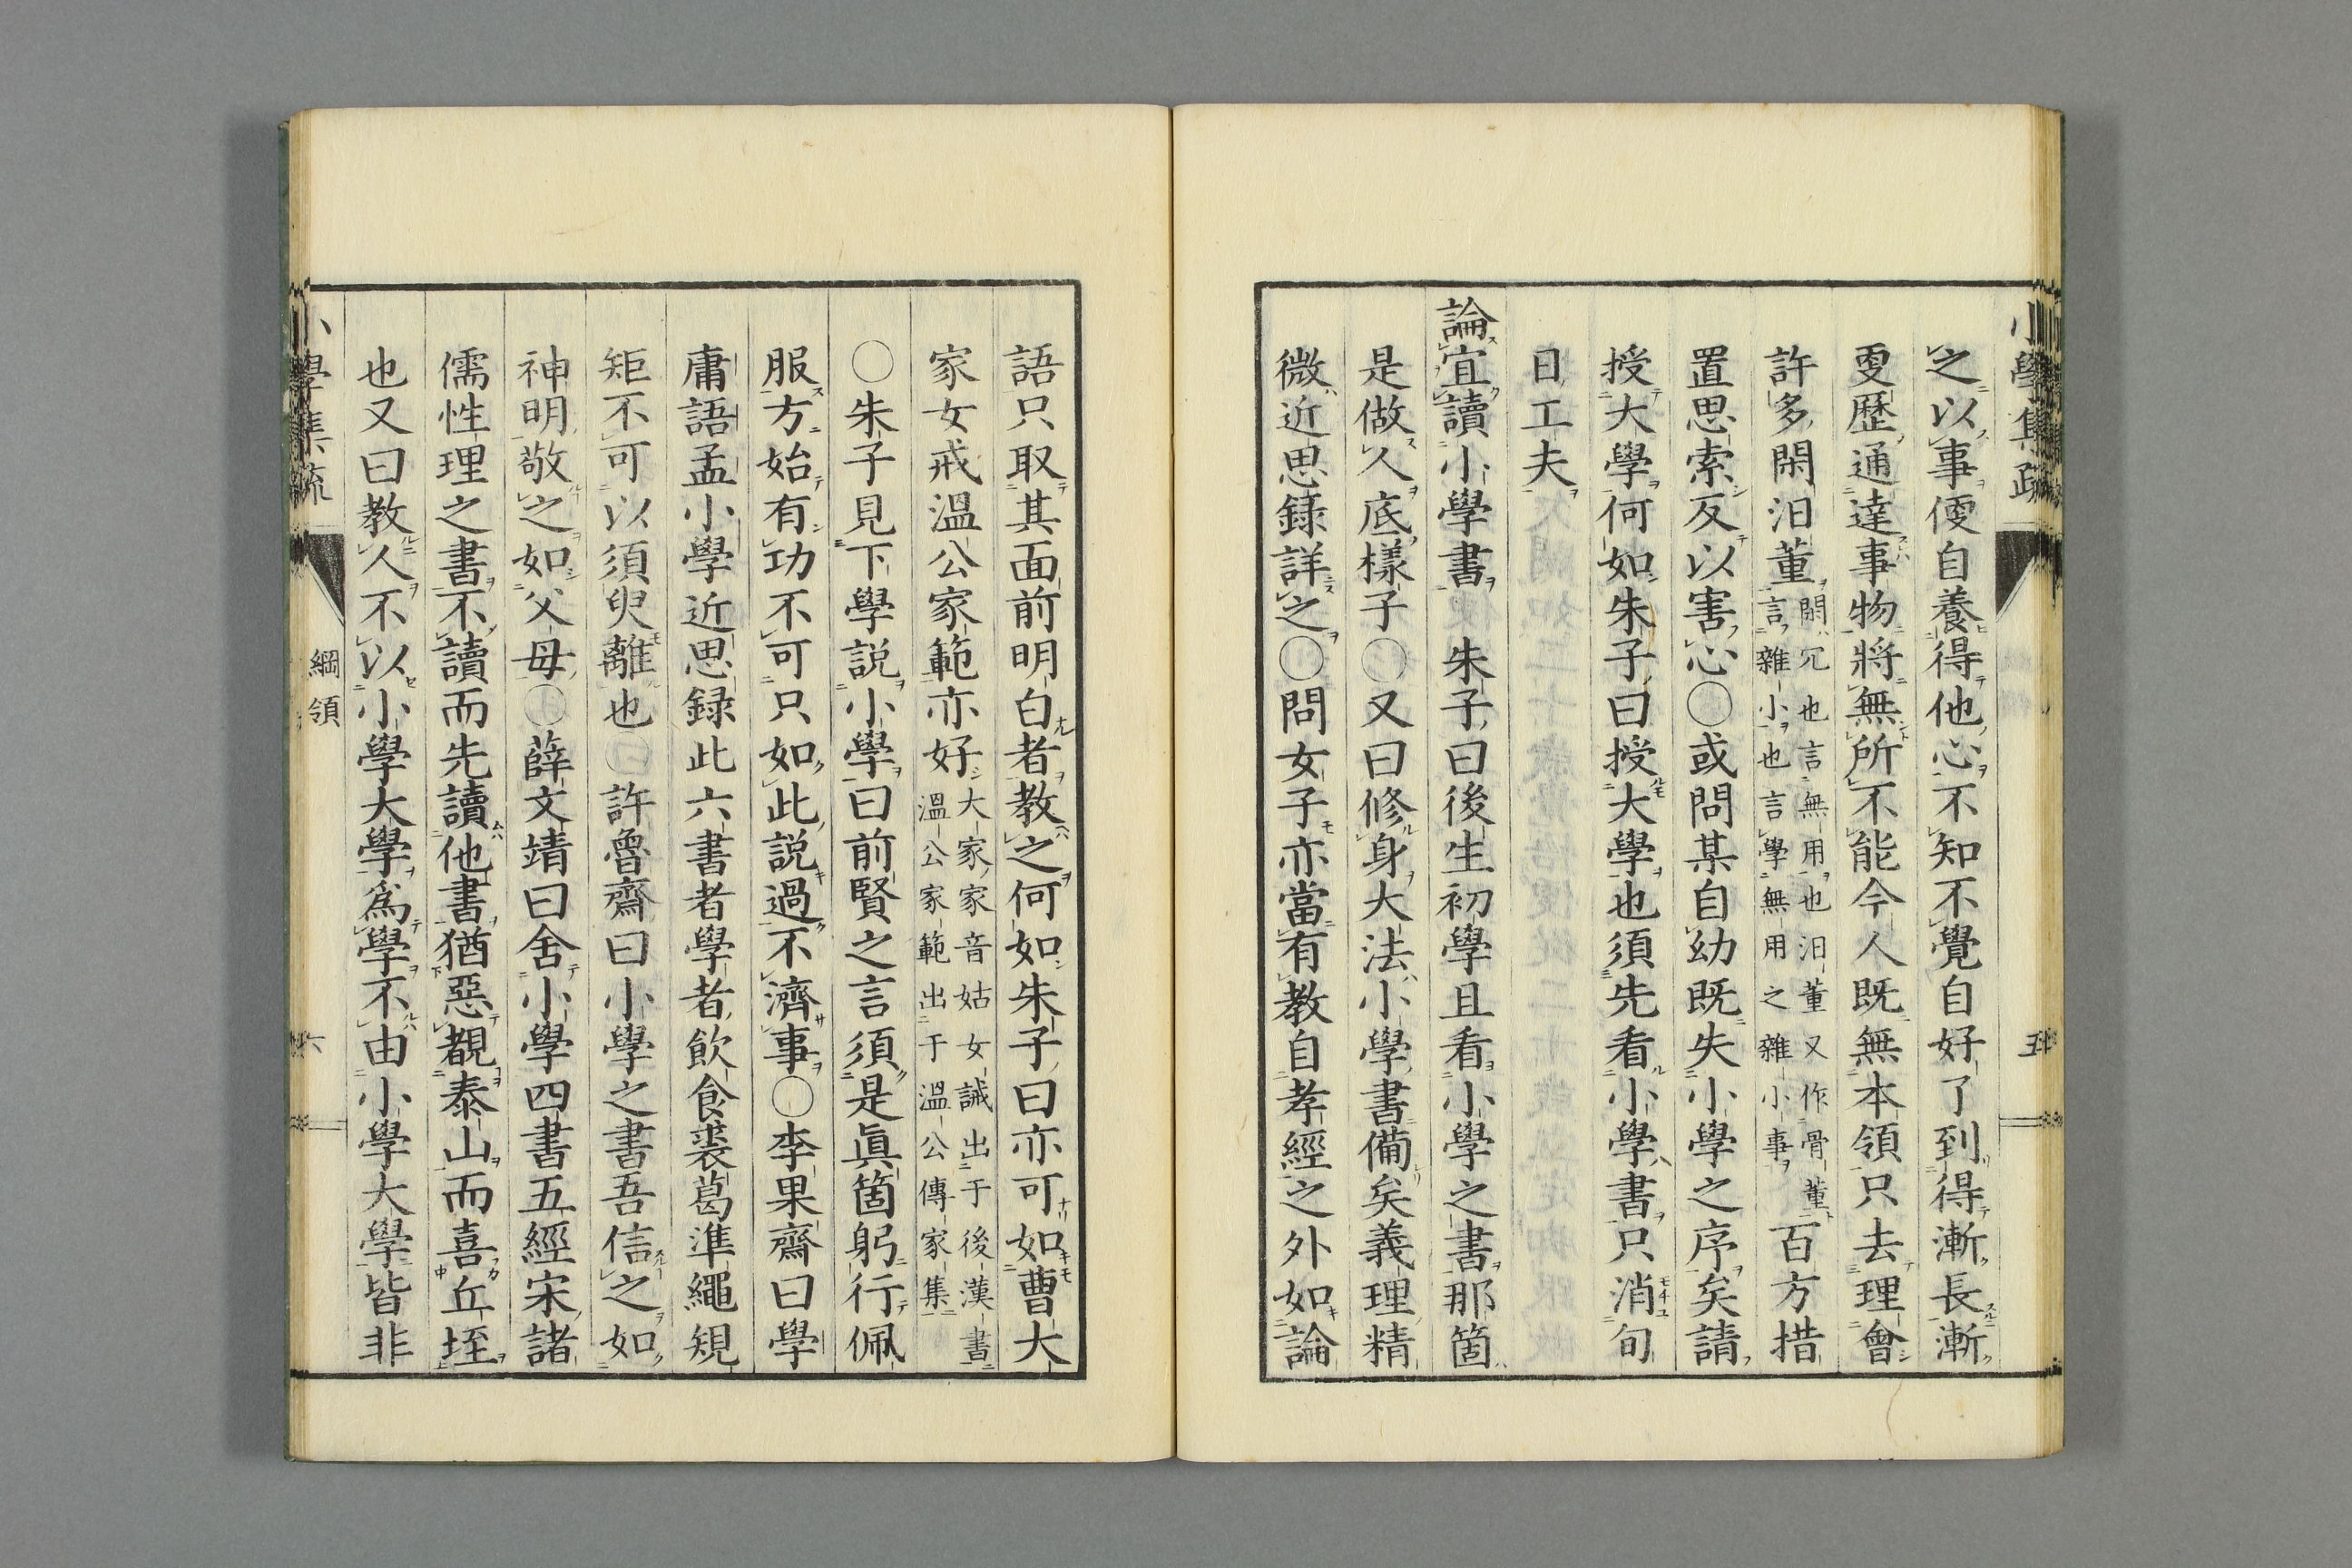 小學集疏
五
之以事便自養得他心不知不覺自好了到得漸長漸
更歷通達事物將無所不能今人既無本領只去理會
許多閑汩董
閑冗也言無用也汩董又作骨董
言雜小也言學無用之雜小事
百方措
置思索反以害心○或問某自幼既失小學之序矣請
授大學何如朱子曰授大學也須先看小學書只消旬
日工夫
論宜讀小學書　朱子曰後生初學且看小學之書那箇
是做人底樣子○又曰修身大法小學書備矣義理精
微近思録詳之○問女子亦當有教自孝經之外如論
語只取其面前明白者教之何如朱子曰亦可如曹大
家女戒溫公家範亦好
大家家音姑女誡出于後漢書
溫公家範出于溫公傳家集
○朱子見下學説小學曰前賢之言須是眞箇躬行佩
服方始有功不可只如此説過不濟事○李果齋曰學
庸語孟小學近思録此六書者學者飲食裘葛準繩規
矩不可以須臾離也○許魯齋曰小學之書吾信之如
神明敬之如父母○薛文靖曰舍小學四書五經宋諸
儒性理之書不讀而先讀他書猶惡覩泰山而喜丘垤
也又曰教人不以小學大學爲學不由小學大學皆非
小學集疏
綱領
六